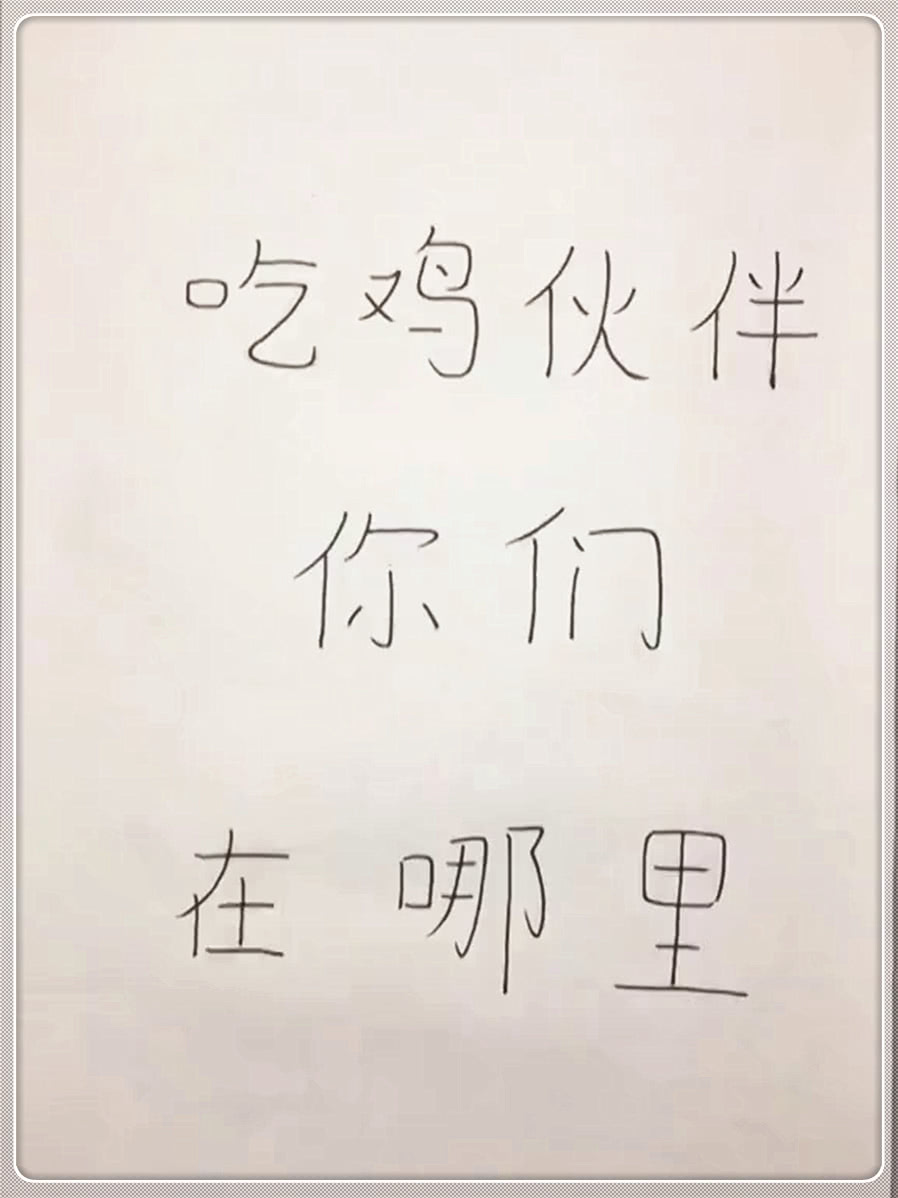 吃鸡伙伴
你们
在哪里